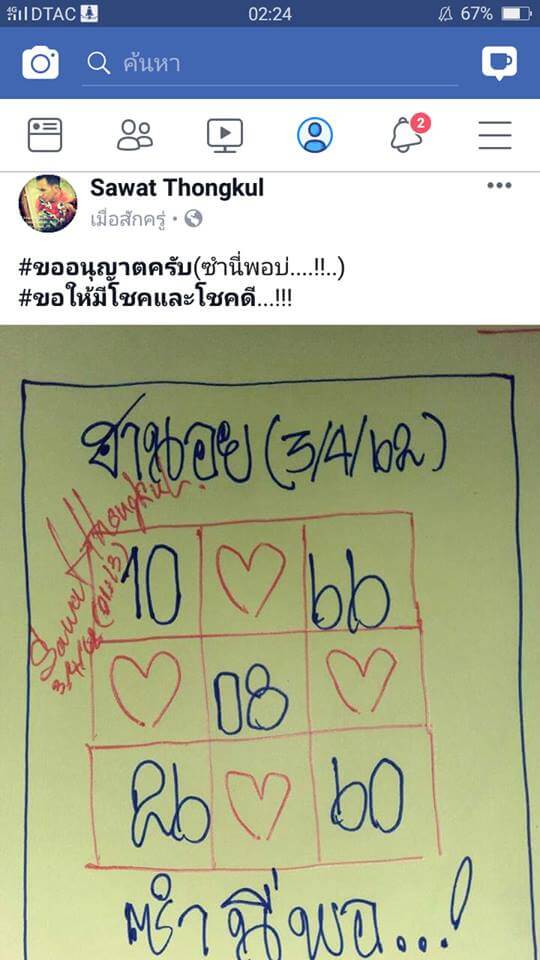 4G DTAC 02:24 67%
ค้นหา
2
Sawat Thongkul
เมื่อสักครู่ •
#ขออนุญาตครับ(ซำนี่พอบ่....!!..)
#ขอให้มีโชคและโชคดี...!!!
ฮานอย (3/4/62)
Sawat Thongkul.
10 66
08
26 60
ซำนี่พอ...!